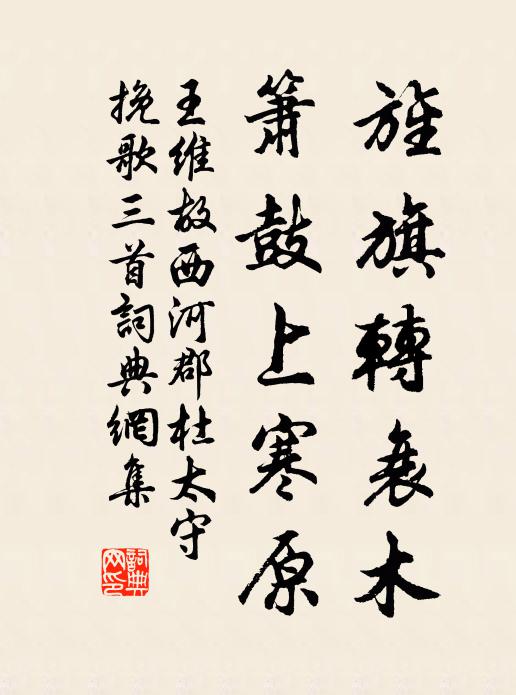 旌旗轉衰木
簫鼓上寒原
王維故西河郡杜太守
挽歌三首詞典網集
詞典網印